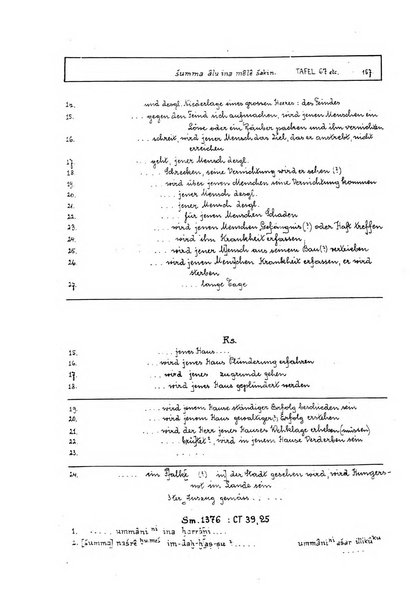 šumma âlu ina mêlê šakin. TAFEL 67 etc. 157
14. und dergl. Niederlage eines grossen Heeres: des Feindes
15. ... gegen den Feind sich aufmachen, wird jenen Menschen ein
Löwe oder ein Räuber packen und ihn vernichten
16. ... schreit, wird jener Mensch das Ziel, das er anstrebt, nicht
erreichen
17. ... geht, jener Mensch dergl.
18. ... Schrecken, seine Vernichtung wird er sehen (?)
19. ... wird über jenen Menschen seine Vernichtung kommen
20. .... jener Mensch dergl.
21. .... jener Mensch dergl.
22. .... für jenen Menschen Schaden
23. ... wird jenen Menschen Gefängnis (?) oder Haft treffen
24. .... wird ihn Krankheit erfassen
25. ... wird jenen Menschen aus seinem Bau (?) vertreiben
26. ... wird jenen Menschen Krankheit erfassen, er wird
sterben
27. .... lange Tage
Rs.
15. .... jenes Haus ....
16. .... wird jenes Haus Plünderung erfahren
17. .... wird jener zugrunde gehen
18. .... wird jenes Haus geplündert werden
19. .... wird jenem Hause ständiger Erfolg beschieden sein
20. .... wird jenem Haus gewaltiger (?) Erfolg erstehen
21. .... wird der Herr jenes Hauses Wehklage erheben (müssen)
22. .... brütet?, wird in jenem Hause Verderben sein
23. .....
24. ...... ein Falke (?) in] der Stadt gesehen wird, wird Hungers-
not im Lande sein
3ter Auszug gemäss ....
Sm. 1376 : CT 39,25
1. ..... ummâni ni ina ḫarrâni ...
2. [šumma] našrê ḫu.meš im-daḫ-ḫaṣ-ṣu ... ummâni ni ašar illiku ku